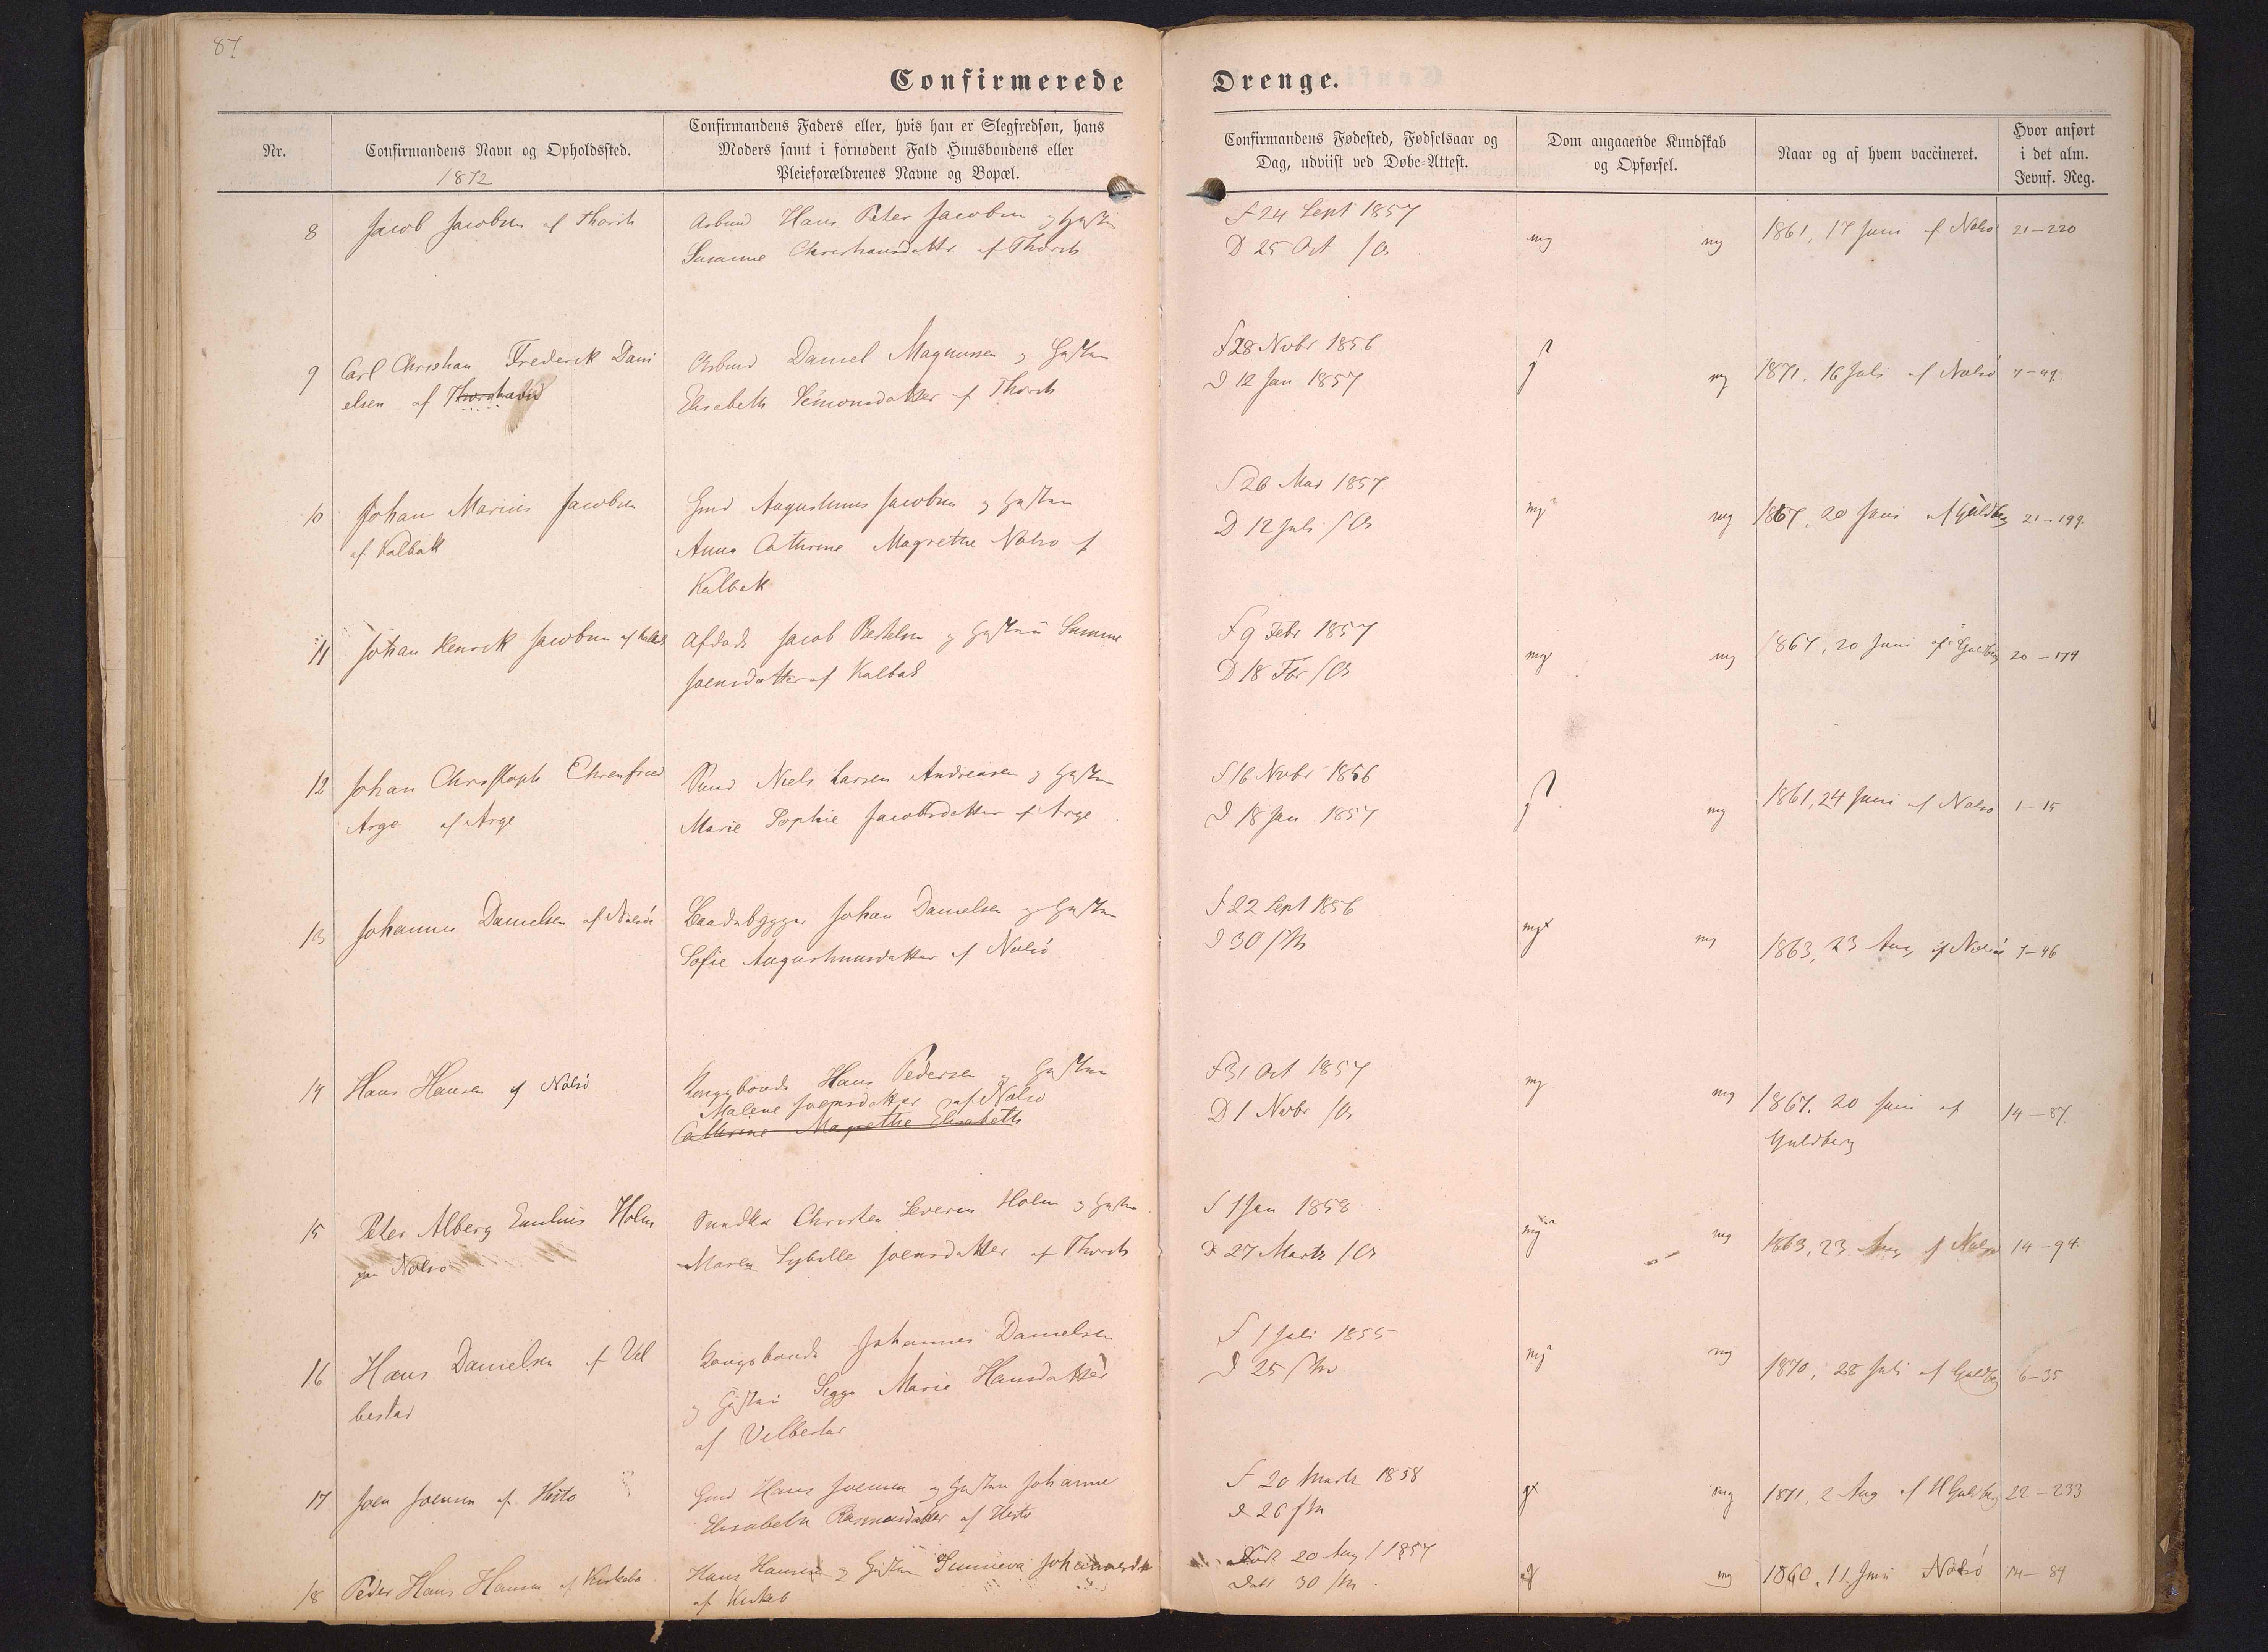 87
Confirmerede Drenge.
Nr.
Confirmandens Navn og Opholdssted.
1872
Confirmandens Faders eller, hvis han er Slegfredsøn, hans
Moders samt i fornødent Fald Huusbondens eller
Pleieforældrenes Navne og Bopæl.
Confirmandens Fødested, Fødselsaar og
Dag, udviist ved Døbe-Attest.
Dom angaaende Kundskab
og Opførsel.
Naar og af hvem vaccineret.
Hvor anført
i det alm.
Jevnf. Reg.
8 Jacob Jacobsen af Thorsh
Arbmd Hans Peter Jacobsen og Hustru
Susanne Christiansdatter af Thorsh
F 24 Sept 1857
D 25 Oct
mg mg
1861, 17 Juni af Nolsö 21-220
9 Carl Christian Frederik Dani
elsen af Thorshavn
Arbmd Daniel Magnussen og Hustru
Elisabeth Simonsdatter af Thorsh
F 28 Novbr 1856
D 12 Jan 1857
g mg
1871, 16 Juli af Nolsö 7-49
10 Johan Marius Jacobsen
af Kalbak
Gmd Augustinus Jacobsen og Hustru
Anna Cathrine Magrethe Nolsö af
Kalbak
F 26 Mai 1857
D 12 Juli
mg mg
1867, 20 Juni af Guldberg 21-199.
11 Johan Henrik Jacobsen af Kalbak
Afdøde Jacob Bertelsen og Hustru Sunneva
Joensdatter af Kalbak
F 9 Febr 1857
D 18 Fbr
mg mg
1867, 20 Juni af Guldberg 20-179
12 Johan Christoph Ehrenfried
Arge af Arge
Niels Larsen Andreasen og Hustru
Marie Sophie Jacobsdatter af Arge
F 16 Novbr 1856
D 18 Jan 1857
g mg
1861, 24 Juni af Nolsö 1-15
13 Johannes Danielsen af Nolsö
Baadebygger Johan Danielsen og Hustru
Sofie Augustinusdatter af Nolsö
F 22 Sept 1856
D 30
mg mg
1863, 23 Aug af Nolsö 7-46
14 Hans Hansen af Nolsö
Kongsbonde Hans Pedersen og Hustru
Malene Joensdatter af Nolsö
Cathrine Magrethe Elisabeth
F 31 Oct 1857
D 1 Novbr
mg mg
1867, 20 Juni af
Guldberg
14-87.
15 Peter Alberg Emilius Holm
paa Nolsö
Christen Severin Holm og Hustru
Maren Sybille Joensdatter af Thorsh
F 1 Jan 1858
D 27 Marts
mg mg
1863, 23. Aug af Nolsö 14-94.
16 Hans Danielsen af Vel
bestad
Kongsbonde Johannes Danielsen
og Hustru Sigga Marie Hansdatter
af Velbestad
F 1 Juli 1855
D 25
mg mg
1870, 28 Juli af Guldberg 6-35
17 Joen Joensen af Hestö
Gmd Hans Joensen og Hustru Johanne
Elisabeth Rasmusdatter af Hestö
F 20 Marts 1858
D 26
g mg
1871, 2 Aug af H Guldberg 22-233
18 Peder Hans Hansen af Kirkebö
Hans Hansen og Hustru Sunneva Johannesdtr
af Kirkebö
Født 20 Aug 1857
Døbt 30
g mg
1860, 11. Juni Nolsö 14-84